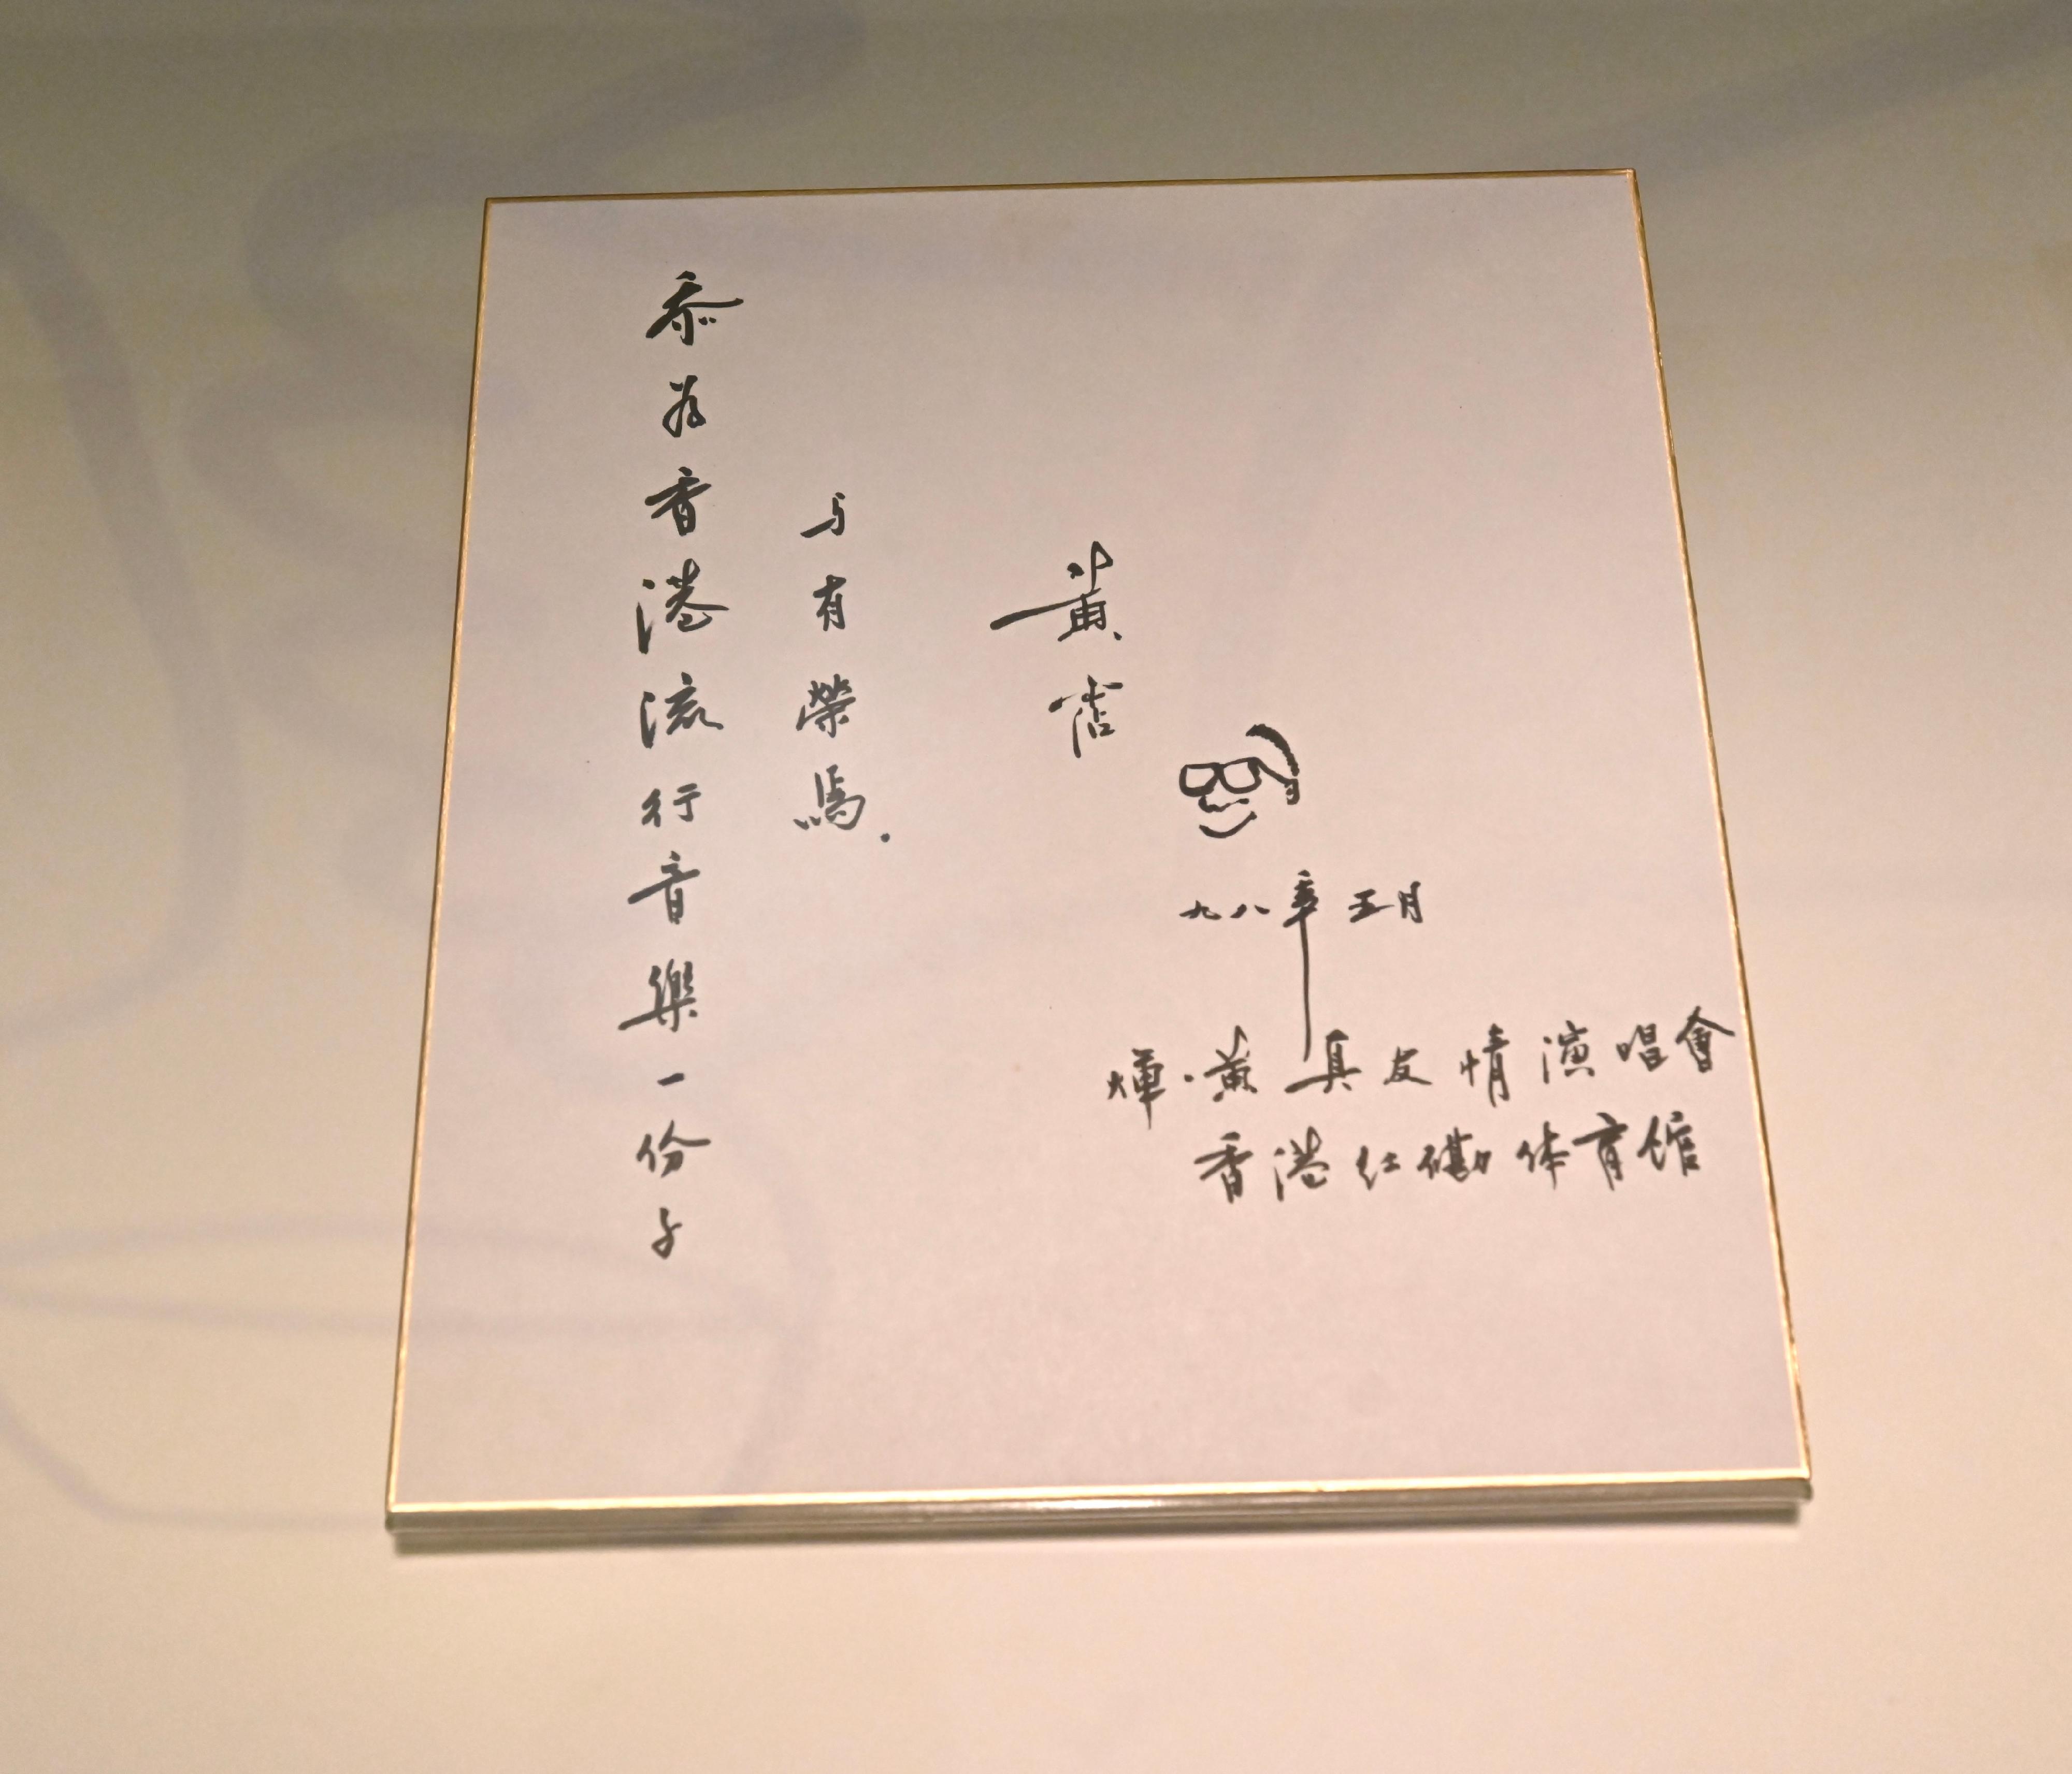 忝為香港流行音樂一份子
与有榮焉.
黃霑
九八年五月
煇·黃真友情演唱會
香港红磡体育馆